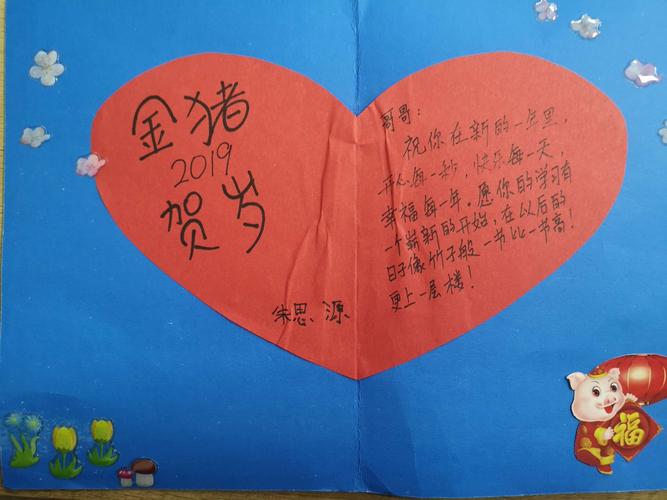 金猪
2019
贺岁
朱思源
哥哥：
祝你在新的一年里，
开心每一秒，快乐每一天，
幸福每一年。愿你的学习有
一个崭新的开始，在以后的
日子像竹子般一节比一节高！
更上一层楼！
福